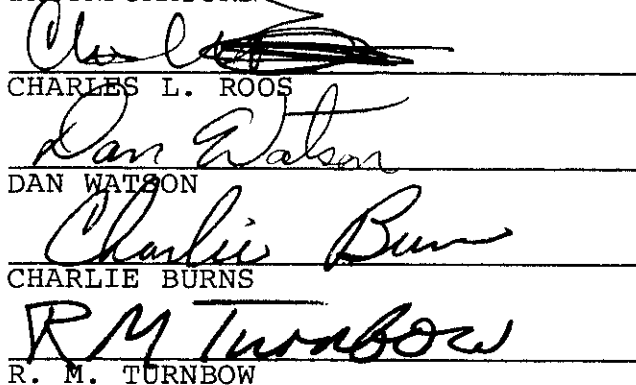 CHARLES L. ROOS
Dan Watson
DAN WATSON
Charlie Burns
CHARLIE BURNS
R M Turnbow
R. M. TURNBOW